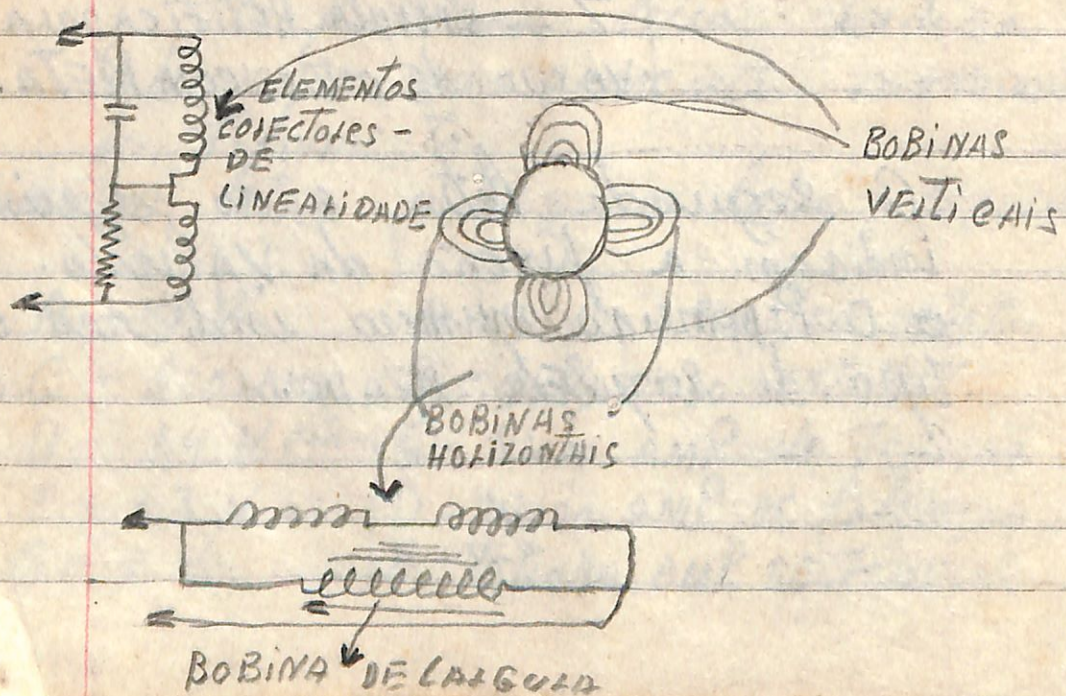 ELEMENTOS
CORECTORES -
DE
LINEARIDADE
BOBINAS
VERTICAIS
BOBINAS
HORIZONTAIS
BOBINA DE LARGURA